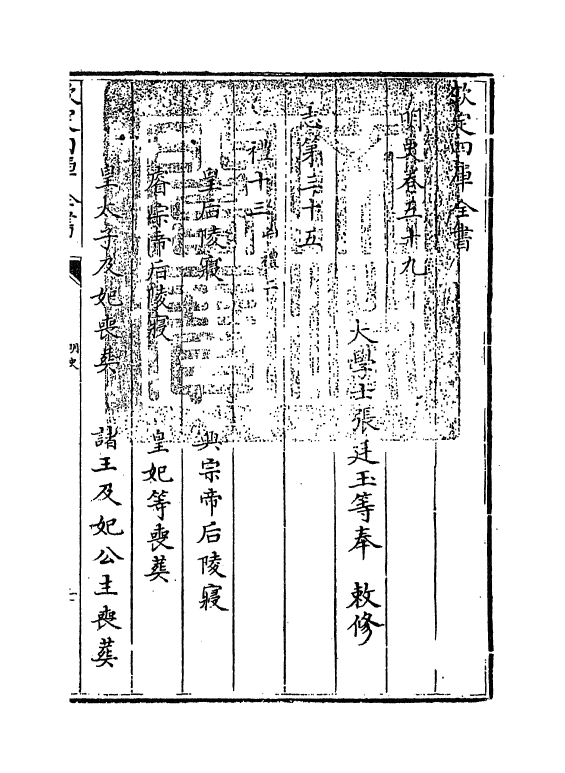 欽定四庫全書
明史卷五十九
大學士張廷玉等奉 敕修
志第三十五
禮十三 凶禮二
皇后陵寢 興宗帝后陵寢
睿宗帝后陵寢 皇妃等喪葬
皇太子及妃喪葬 諸王及妃公主喪葬
欽定四庫全書
明史